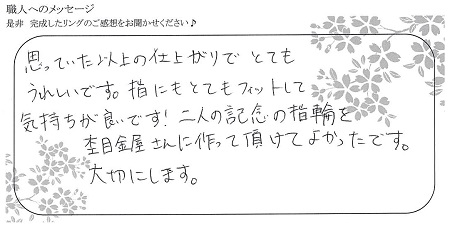 職人へのメッセージ
是非 完成したリングのご感想をお聞かせください♪
思っていた以上の仕上がりで とても
うれしいです。指にもとてもフィットして
気持ちが良いです！二人の記念の指輪を
杢目金屋さんに作って頂けてよかったです。
大切にします。